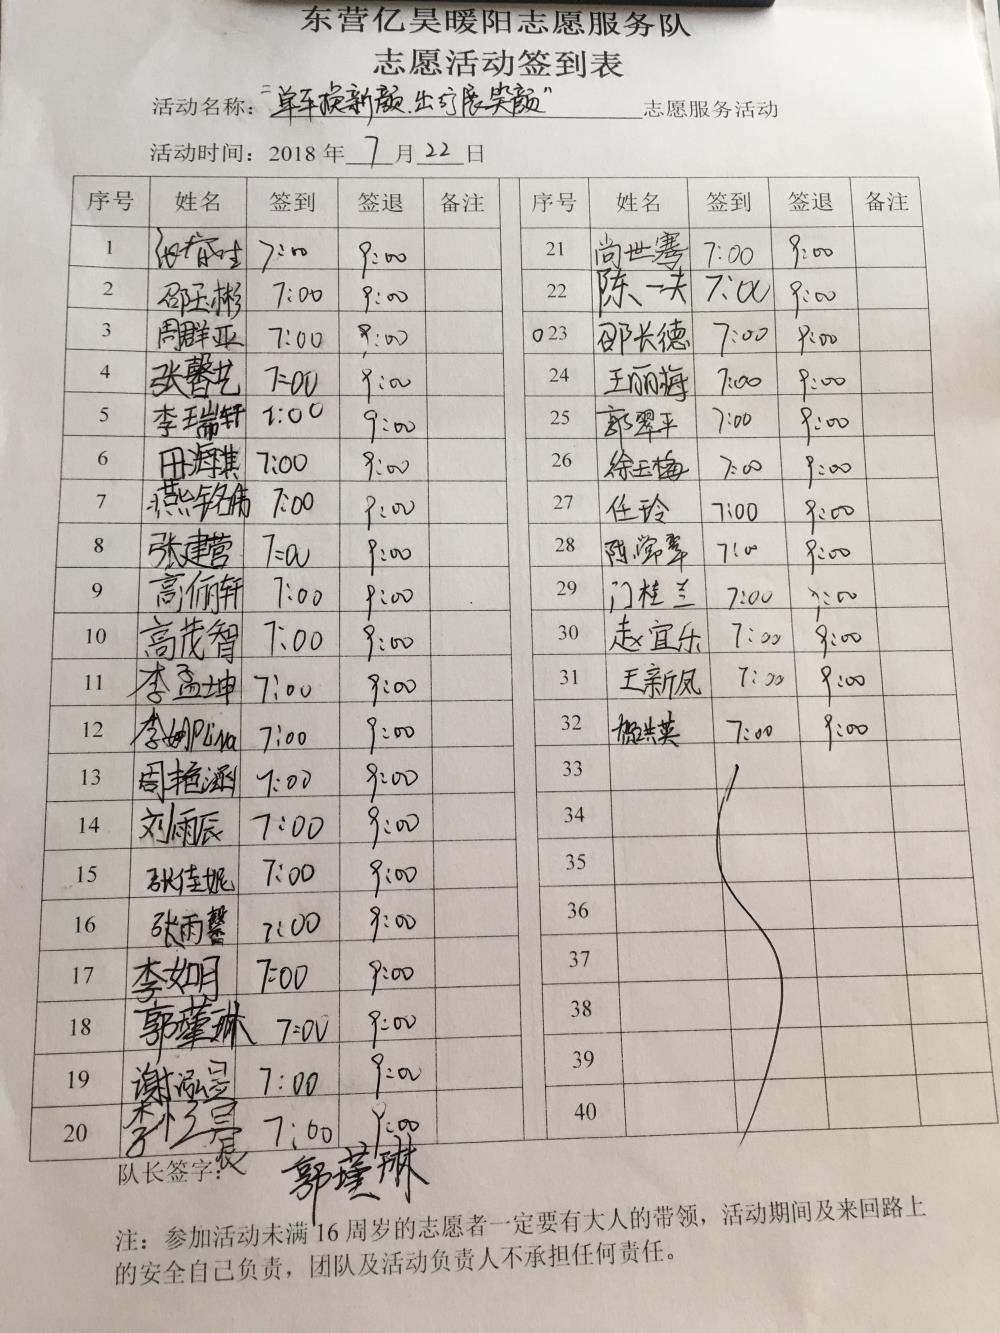 东营亿昊暖阳志愿服务队
志愿活动签到表
活动名称："单车换新颜.出行展笑颜"志愿服务活动
活动时间：2018年7月22日
序号 姓名 签到 签退 备注 序号 姓名 签到 签退 备注
1 7:00 9:00 21 尚世骞 7:00 9:00
2 邵玉彬 7:00 9:00 22 陈一夫 7:00 9:00
3 周群亚 7:00 9:00 23 邵长德 7:00 9:00
4 张馨艺 7:00 9:00 24 王丽梅 7:00 9:00
5 李瑞轩 7:00 9:00 25 郭翠平 7:00 9:00
6 田海祺 7:00 9:00 26 徐玉梅 7:00 9:00
7 燕铭伟 7:00 9:00 27 任玲 7:00 9:00
8 张建营 7:00 9:00 28 陈常翠 7:00 9:00
9 高俪轩 7:00 9:00 29 门桂兰 7:00 9:00
10 高茂智 7:00 9:00 30 赵宜乐 7:00 9:00
11 李孟坤 7:00 9:00 31 王新凤 7:00 9:00
12 7:00 9:00 32 7:00 9:00
13 周艳涵 7:00 9:00 33
14 刘雨辰 7:00 9:00 34
15 张佳妮 7:00 9:00 35
16 张雨馨 7:00 9:00 36
17 李如月 7:00 9:00 37
18 郭瑾琳 7:00 9:00 38
19 谢泓昊 7:00 9:00 39
20 7:00 9:00 40
队长签字：郭瑾琳
注：参加活动未满16周岁的志愿者一定要有大人的带领，活动期间及来回路上
的安全自己负责，团队及活动负责人不承担任何责任。